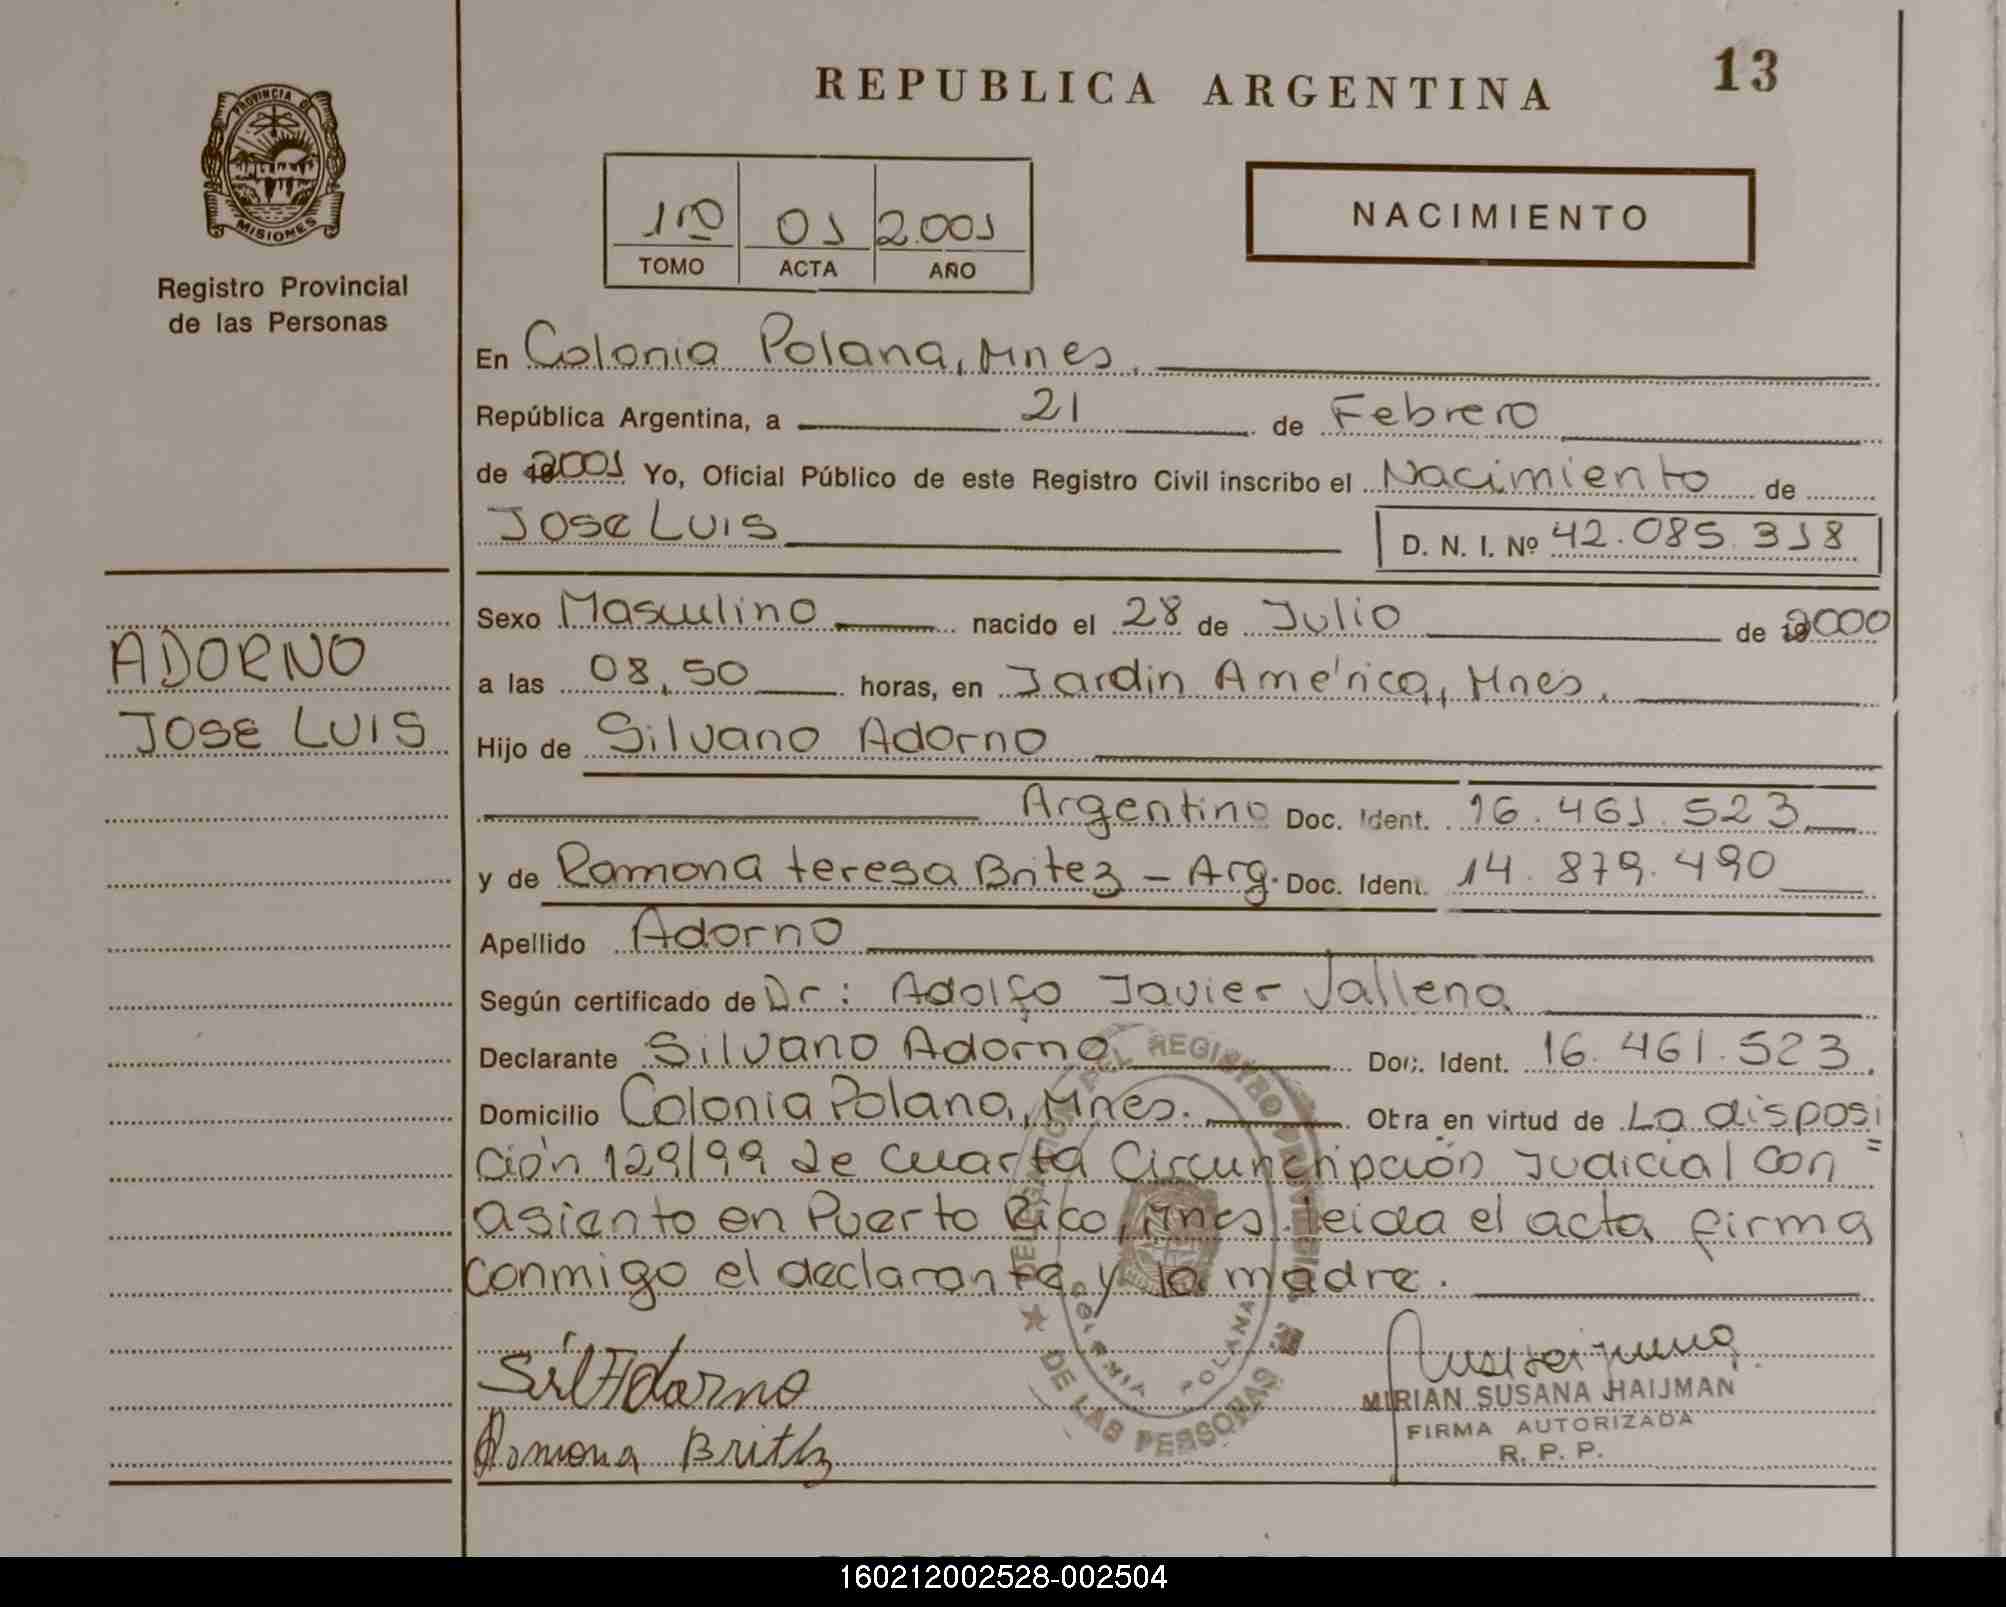 REPUBLICA ARGENTINA
13
PROVINCIA DE
MISIONES
Registro Provincial
de las Personas
1º 01 2.001
TOMO ACTA AÑO
NACIMIENTO
En Colonia Polana, Mnes.
República Argentina, a 21 de Febrero
de 2001 Yo, Oficial Público de este Registro Civil inscribo el Nacimiento de
JOSE LUIS D. N. I. Nº 42.085.318
Sexo Masculino nacido el 28 de Julio de 2000
ADORNO
JOSE LUIS
a las 08,50 horas, en Jardin América, Mnes.
Hijo de Silvano Adorno
Argentino Doc. Ident. 16.461.523
y de Ramona teresa Britez - Arg. Doc. Ident. 14.879.490
Apellido Adorno
Según certificado de Dr: Adolfo Javier Jallena
Declarante Silvano Adorno Doc. Ident. 16.461.523.
Domicilio Colonia Polana, Mnes. Otra en virtud de La disposi
=
ción 129/99 de cuarta Circunchipción Judicial con
asiento en Puerto Rico, Mnes. leida el acta firma
conmigo el declarante y la madre.
DELEGACION DEL REGISTRO PROVINCIAL DE LAS PERSONAS
COLONIA POLANA
Sil Adorno
Ramona Britez
MIRIAN SUSANA HAIJMAN
FIRMA AUTORIZADA
R. P. P.
160212002528-002504